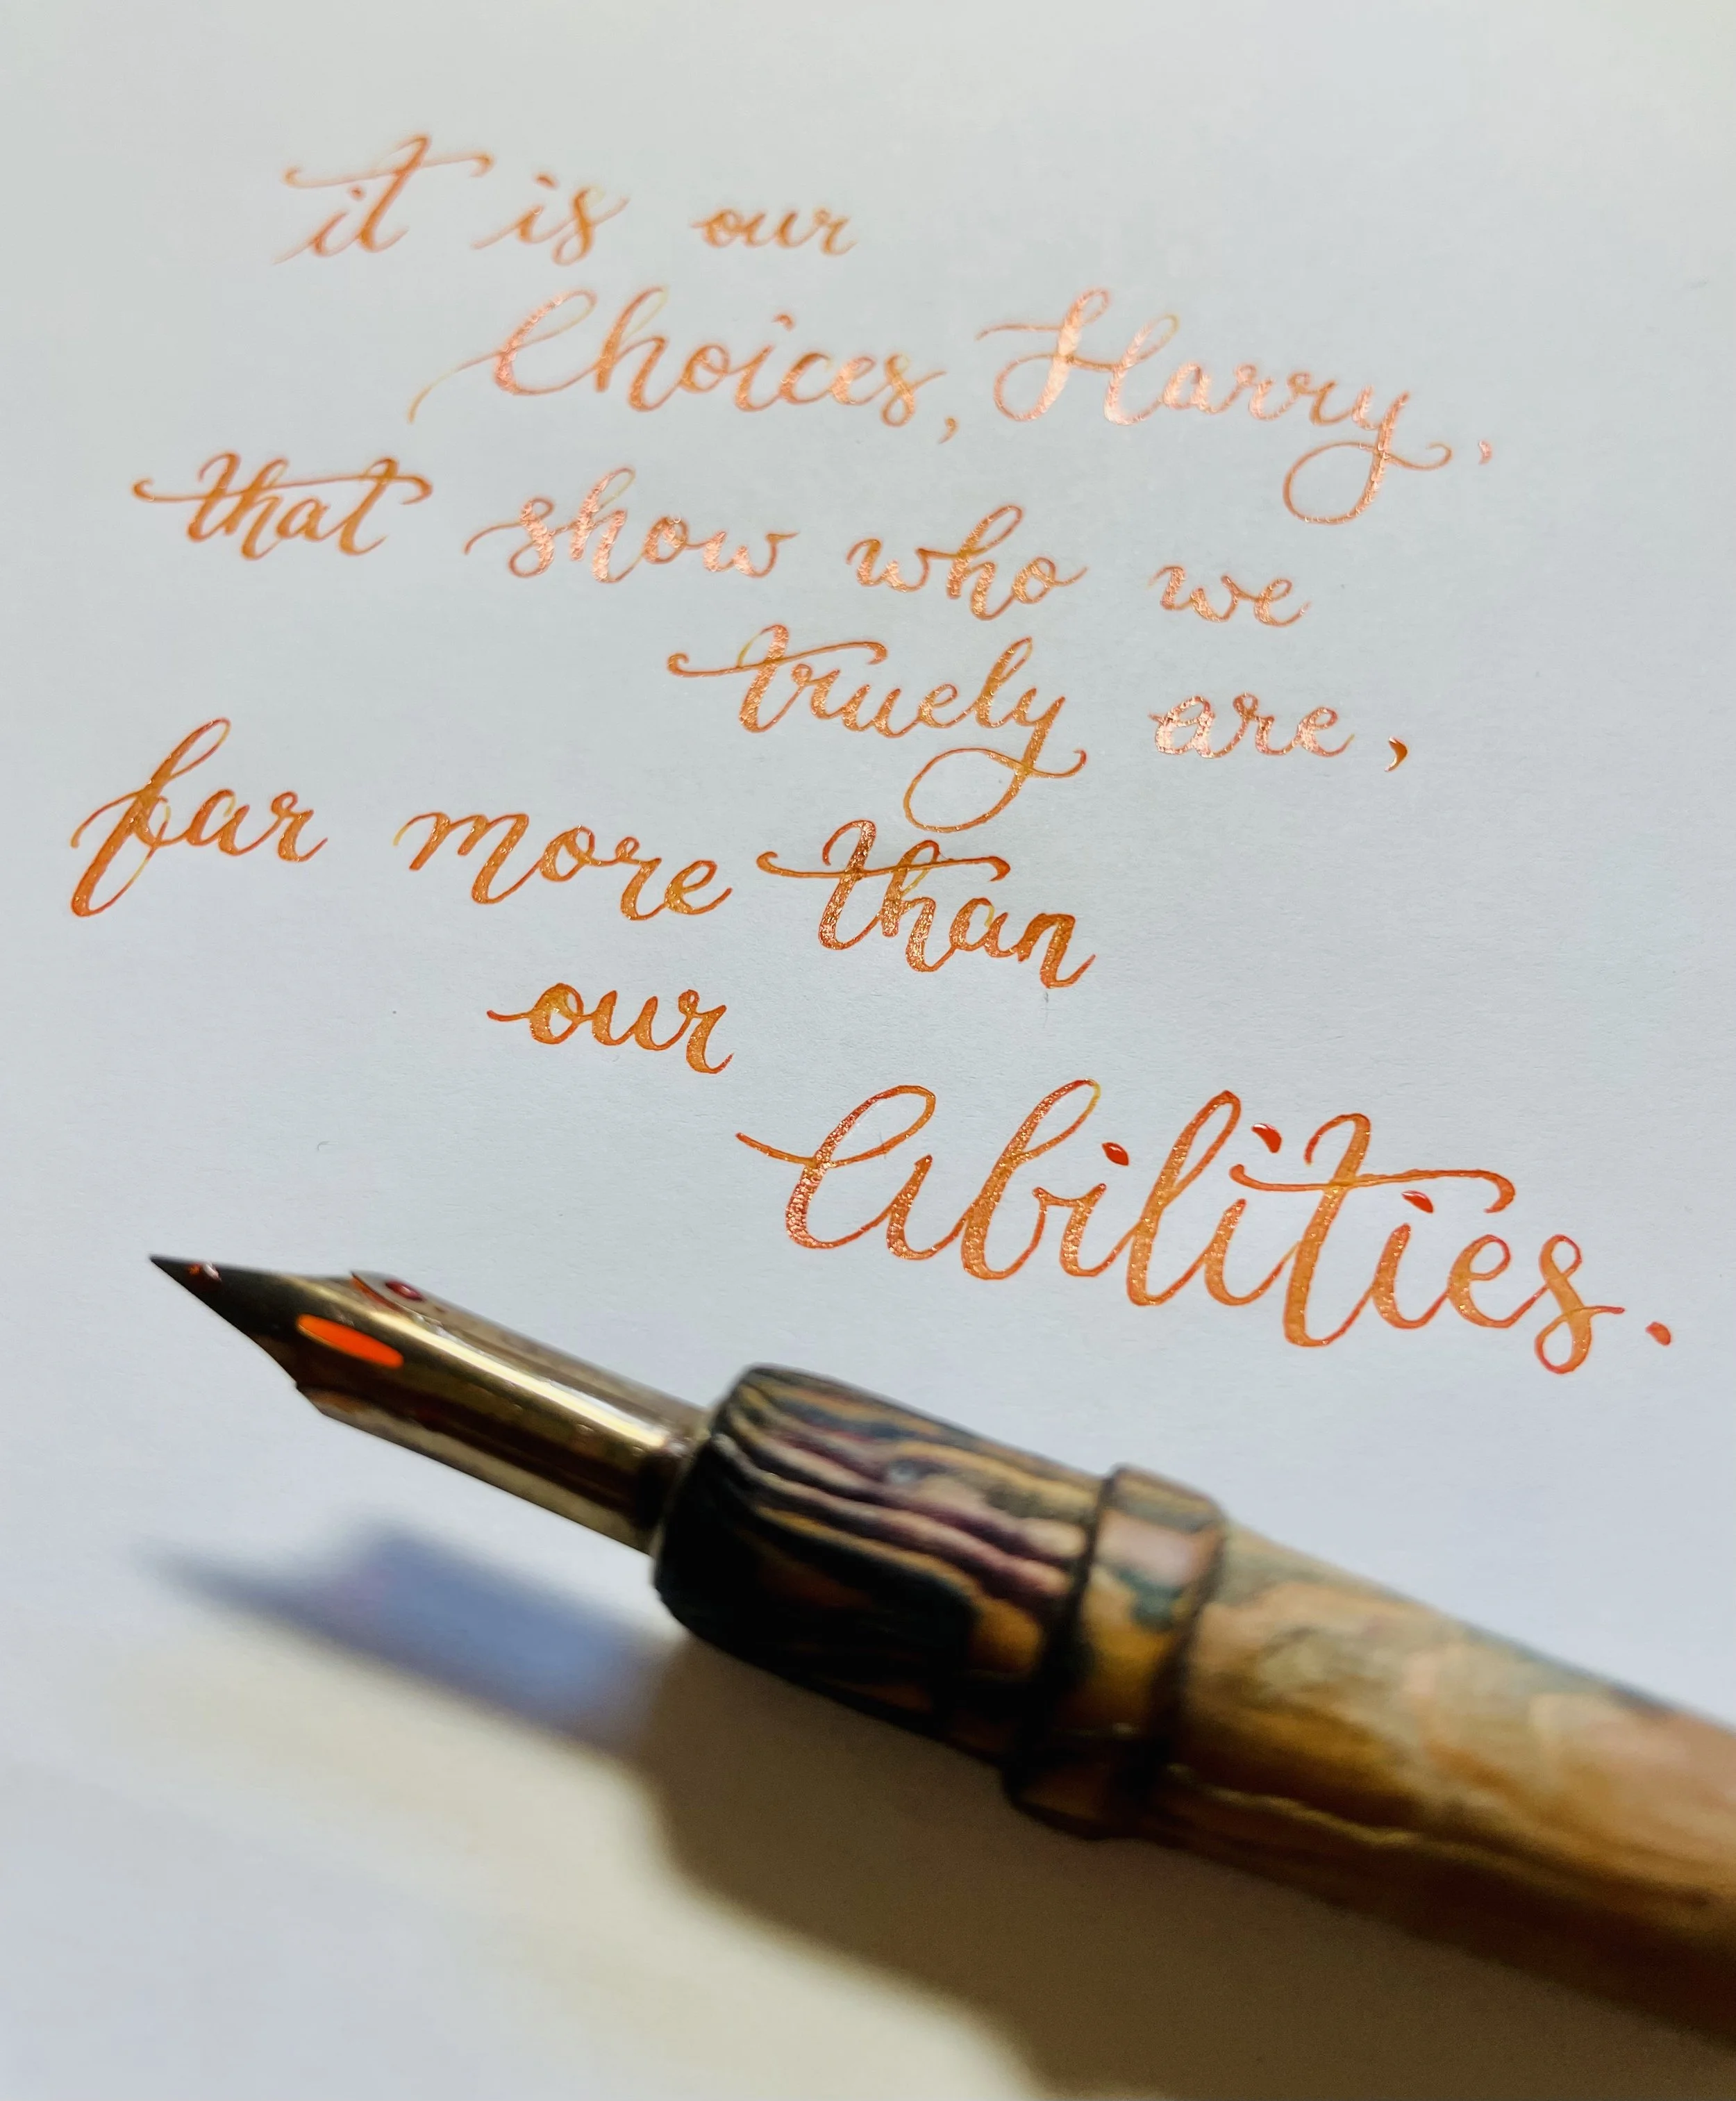 it is our
Choices, Harry,
that show who we
truely are,
far more than
our
Abilities.